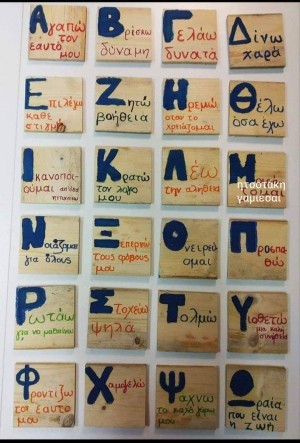 Αγαπώ
τον
εαυτό μου
Βρίσκω
δύναμη
Γελάω
δυνατά
Δίνω
χαρά
Επιλέγω
κάθε
στιγμή
Ζητώ
βοήθεια
Ηρεμώ
όταν το
χρειάζομαι
Θέλω
όσα έχω
Ικανοποι-
ούμαι
Κρατώ
τον λόγο
μου
Λέω
την αλήθεια
Μ
ητσοτάκη
γαμιεσαι
Νοιάζομαι
για όλους
Ξεπερνώ
τους φόβους
μου
Ονειρεύ-
ομαι
Προσπα-
θώ
Ρωτάω
για να μαθαίνω
Στοχεύω
ψηλά
Τολμώ
Υιοθετώ
μια καλή
συνήθεια
Φροντίζω
τον εαυτό
μου
Χαμογελώ
Ψάχνω
το καλύτερο
μου
Ωραία
που είναι
η ζωή